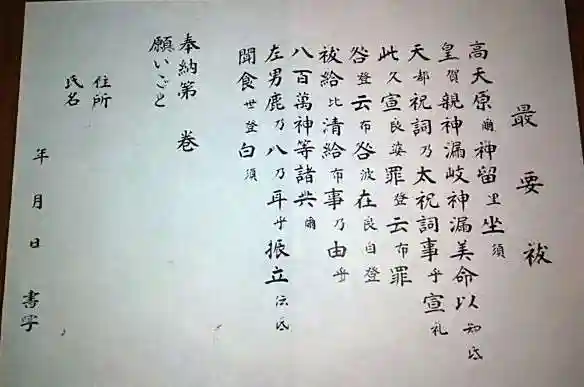 最要祓
高天原爾神留里坐須
皇賀親神漏岐神漏美命以知氐
天都祝詞乃太祝詞事乎宣礼
此久宣良婆罪登云布罪
咎登云布咎波在良自登
祓給比清給布事乃由乎
八百萬神等諸共爾
左男鹿乃八乃耳乎振立伝氐
聞食世登白須
奉納第 巻
願いごと
住所
氏名
年 月 日 書写